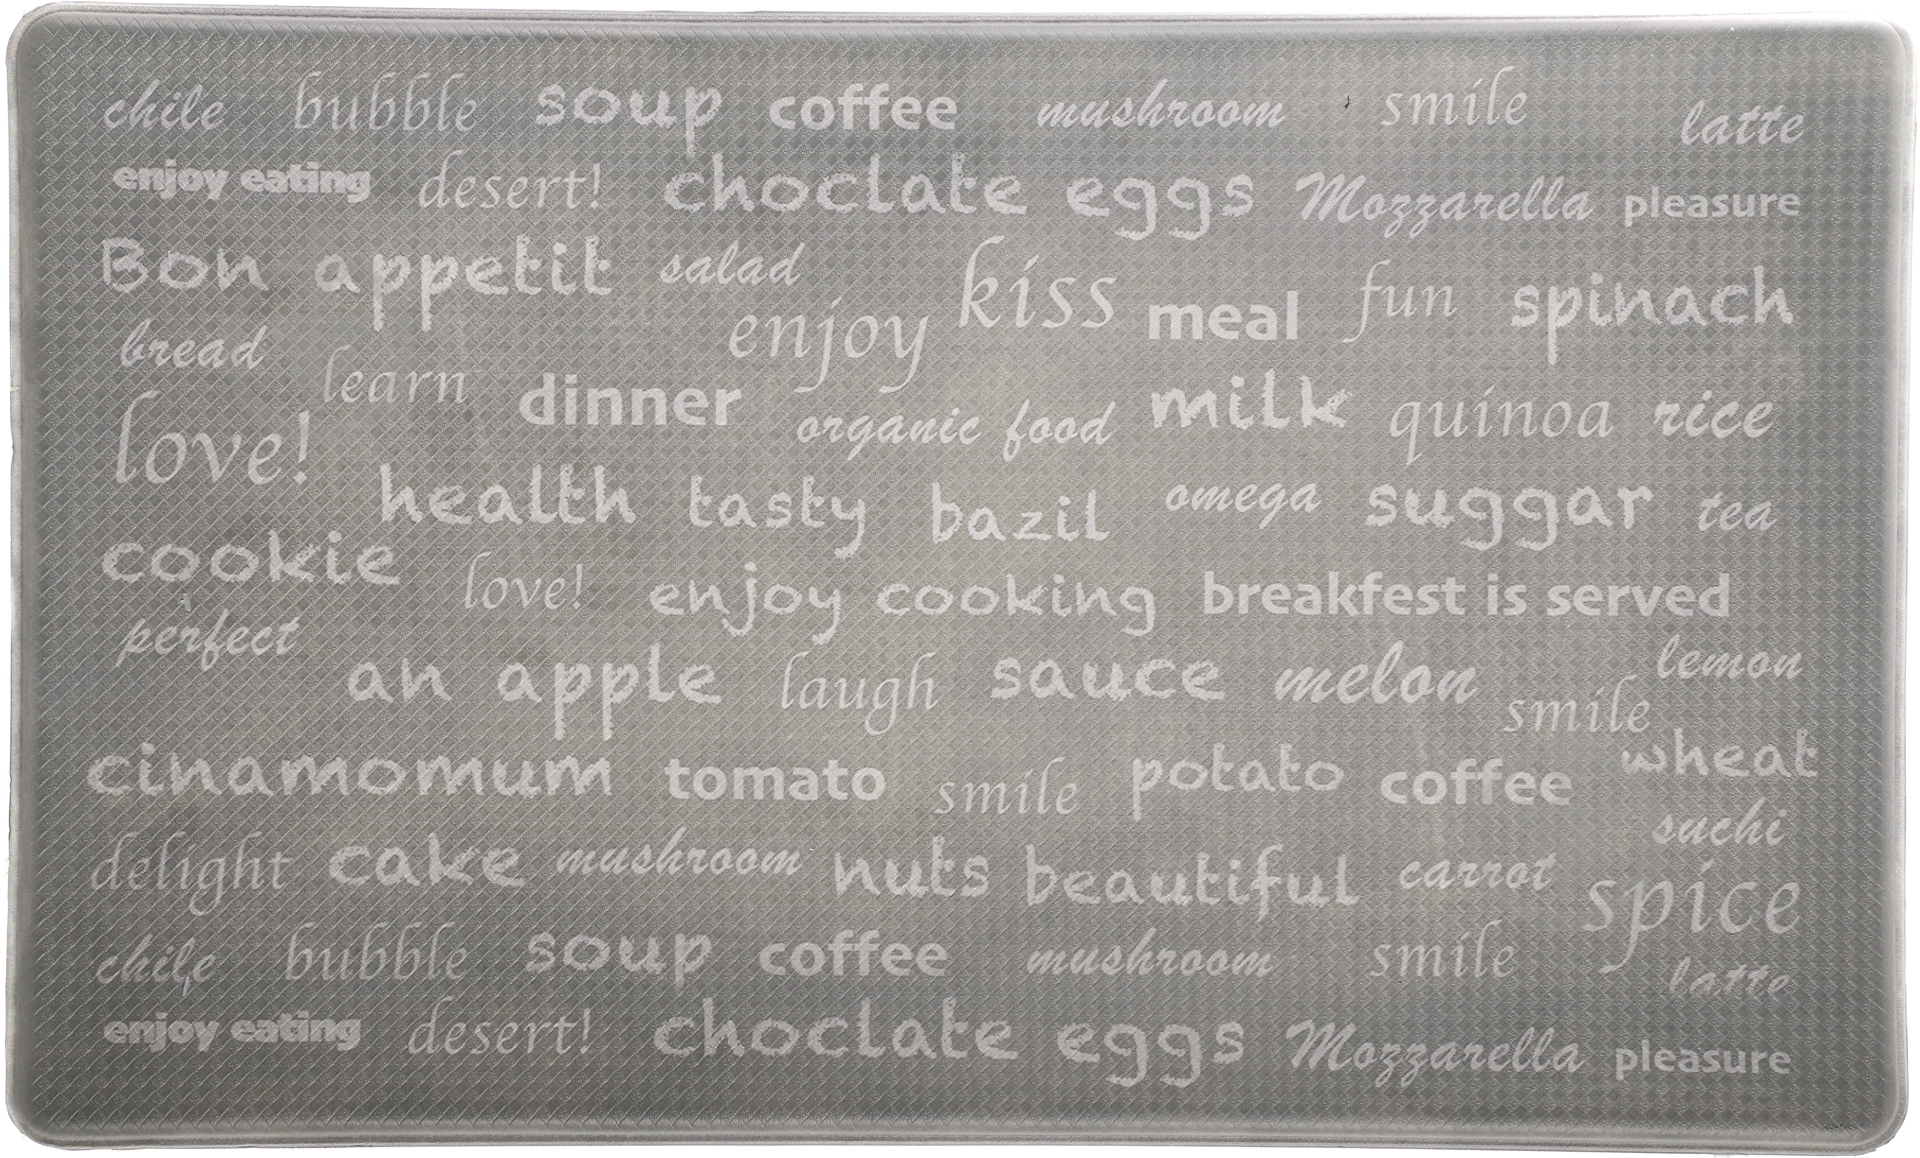 chile bubble soup coffee mushroom smile latte
enjoy eating desert! choclate eggs Mozzarella pleasure
Bon appetit salad kiss meal fun spinach
bread learn enjoy
love! dinner organic food milk quinoa rice
health tasty bazil omega suggar tea
cookie love! enjoy cooking breakfest is served
perfect an apple laugh sauce melon smile lemon
cinamomum tomato smile potato coffee wheat
delight cake mushroom nuts beautiful carrot suchi
spice
chile bubble soup coffee mushroom smile latte
enjoy eating desert! choclate eggs Mozzarella pleasure